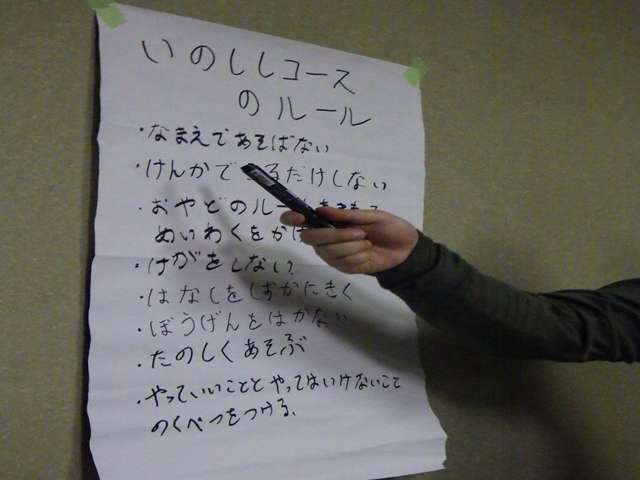 いのししコース
のルール
・なまえであそばない
・けんかで るだけしない
・おやどのルー
めいわくをかけ
・けがをしない
・はなしをしずかにきく
・ぼうげんをはかない
・たのしくあそぶ
・やっていいこととやってはいけないこと
のくべつをつける、